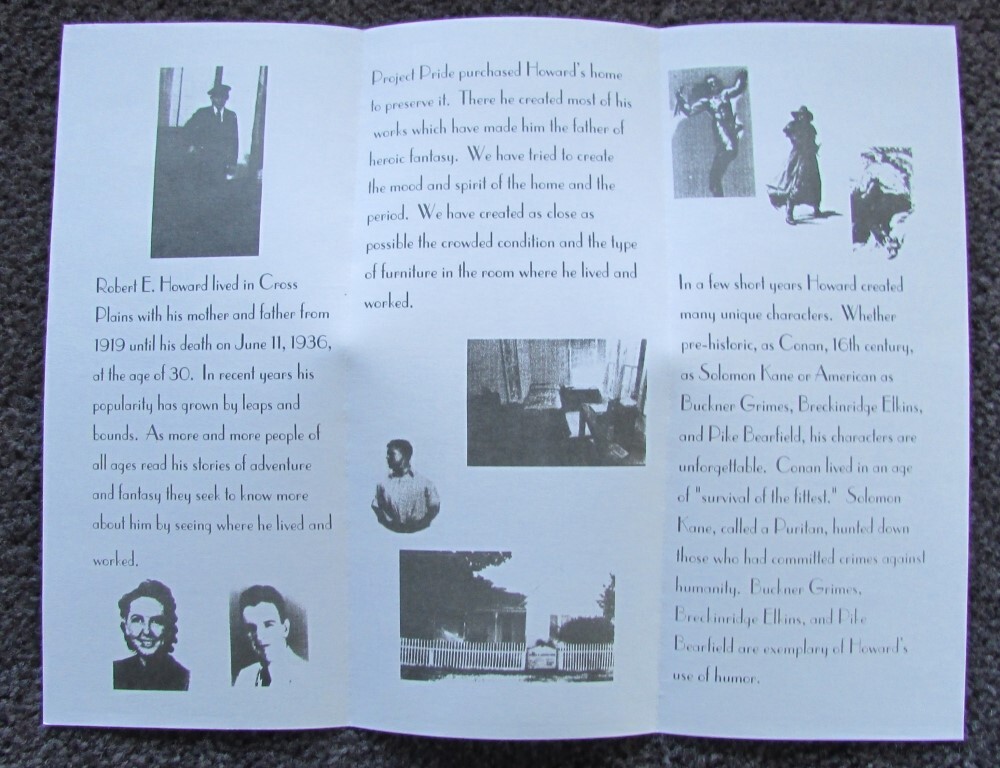 Robert E. Howard lived in Cross
Plains with his mother and father from
1919 until his death on June 11, 1936,
at the age of 30. In recent years his
popularity has grown by leaps and
bounds. As more and more people of
all ages read his stories of adventure
and fantasy they seek to know more
about him by seeing where he lived and
worked.
Project Pride purchased Howard's home
to preserve it. There he created most of his
works which have made him the father of
heroic fantasy. We have tried to create
the mood and spirit of the home and the
period. We have created as close as
possible the crowded condition and the type
of furniture in the room where he lived and
worked.
In a few short years Howard created
many unique characters. Whether
pre-historic, as Conan, 16th century,
as Solomon Kane or American as
Buckner Grimes, Breckinridge Elkins,
and Pike Bearfield, his characters are
unforgettable. Conan lived in an age
of "survival of the fittest." Solomon
Kane, called a Puritan, hunted down
those who had committed crimes against
humanity. Buckner Grimes,
Breckinridge Elkins, and Pike
Bearfield are exemplary of Howard's
use of humor.